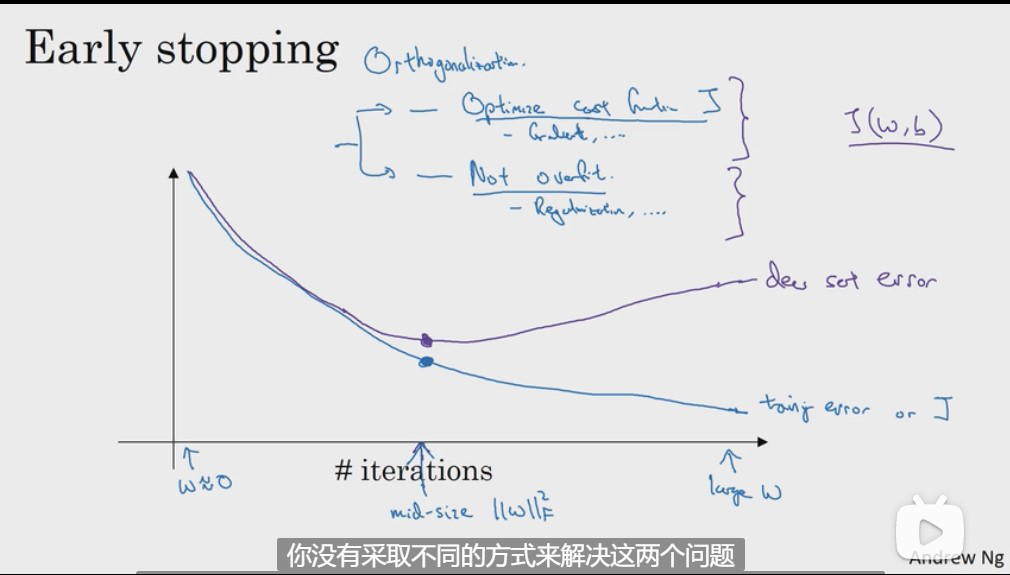 Early stopping
Orthogonalization.
— Optimize cost function J
- Gradient, ....
J(w,b)
— Not overfit.
- Regularization, ....
dev set error
training error or J
w≈0
# iterations
mid-size ||w||²F
large w
你没有采取不同的方式来解决这两个问题
Andrew Ng